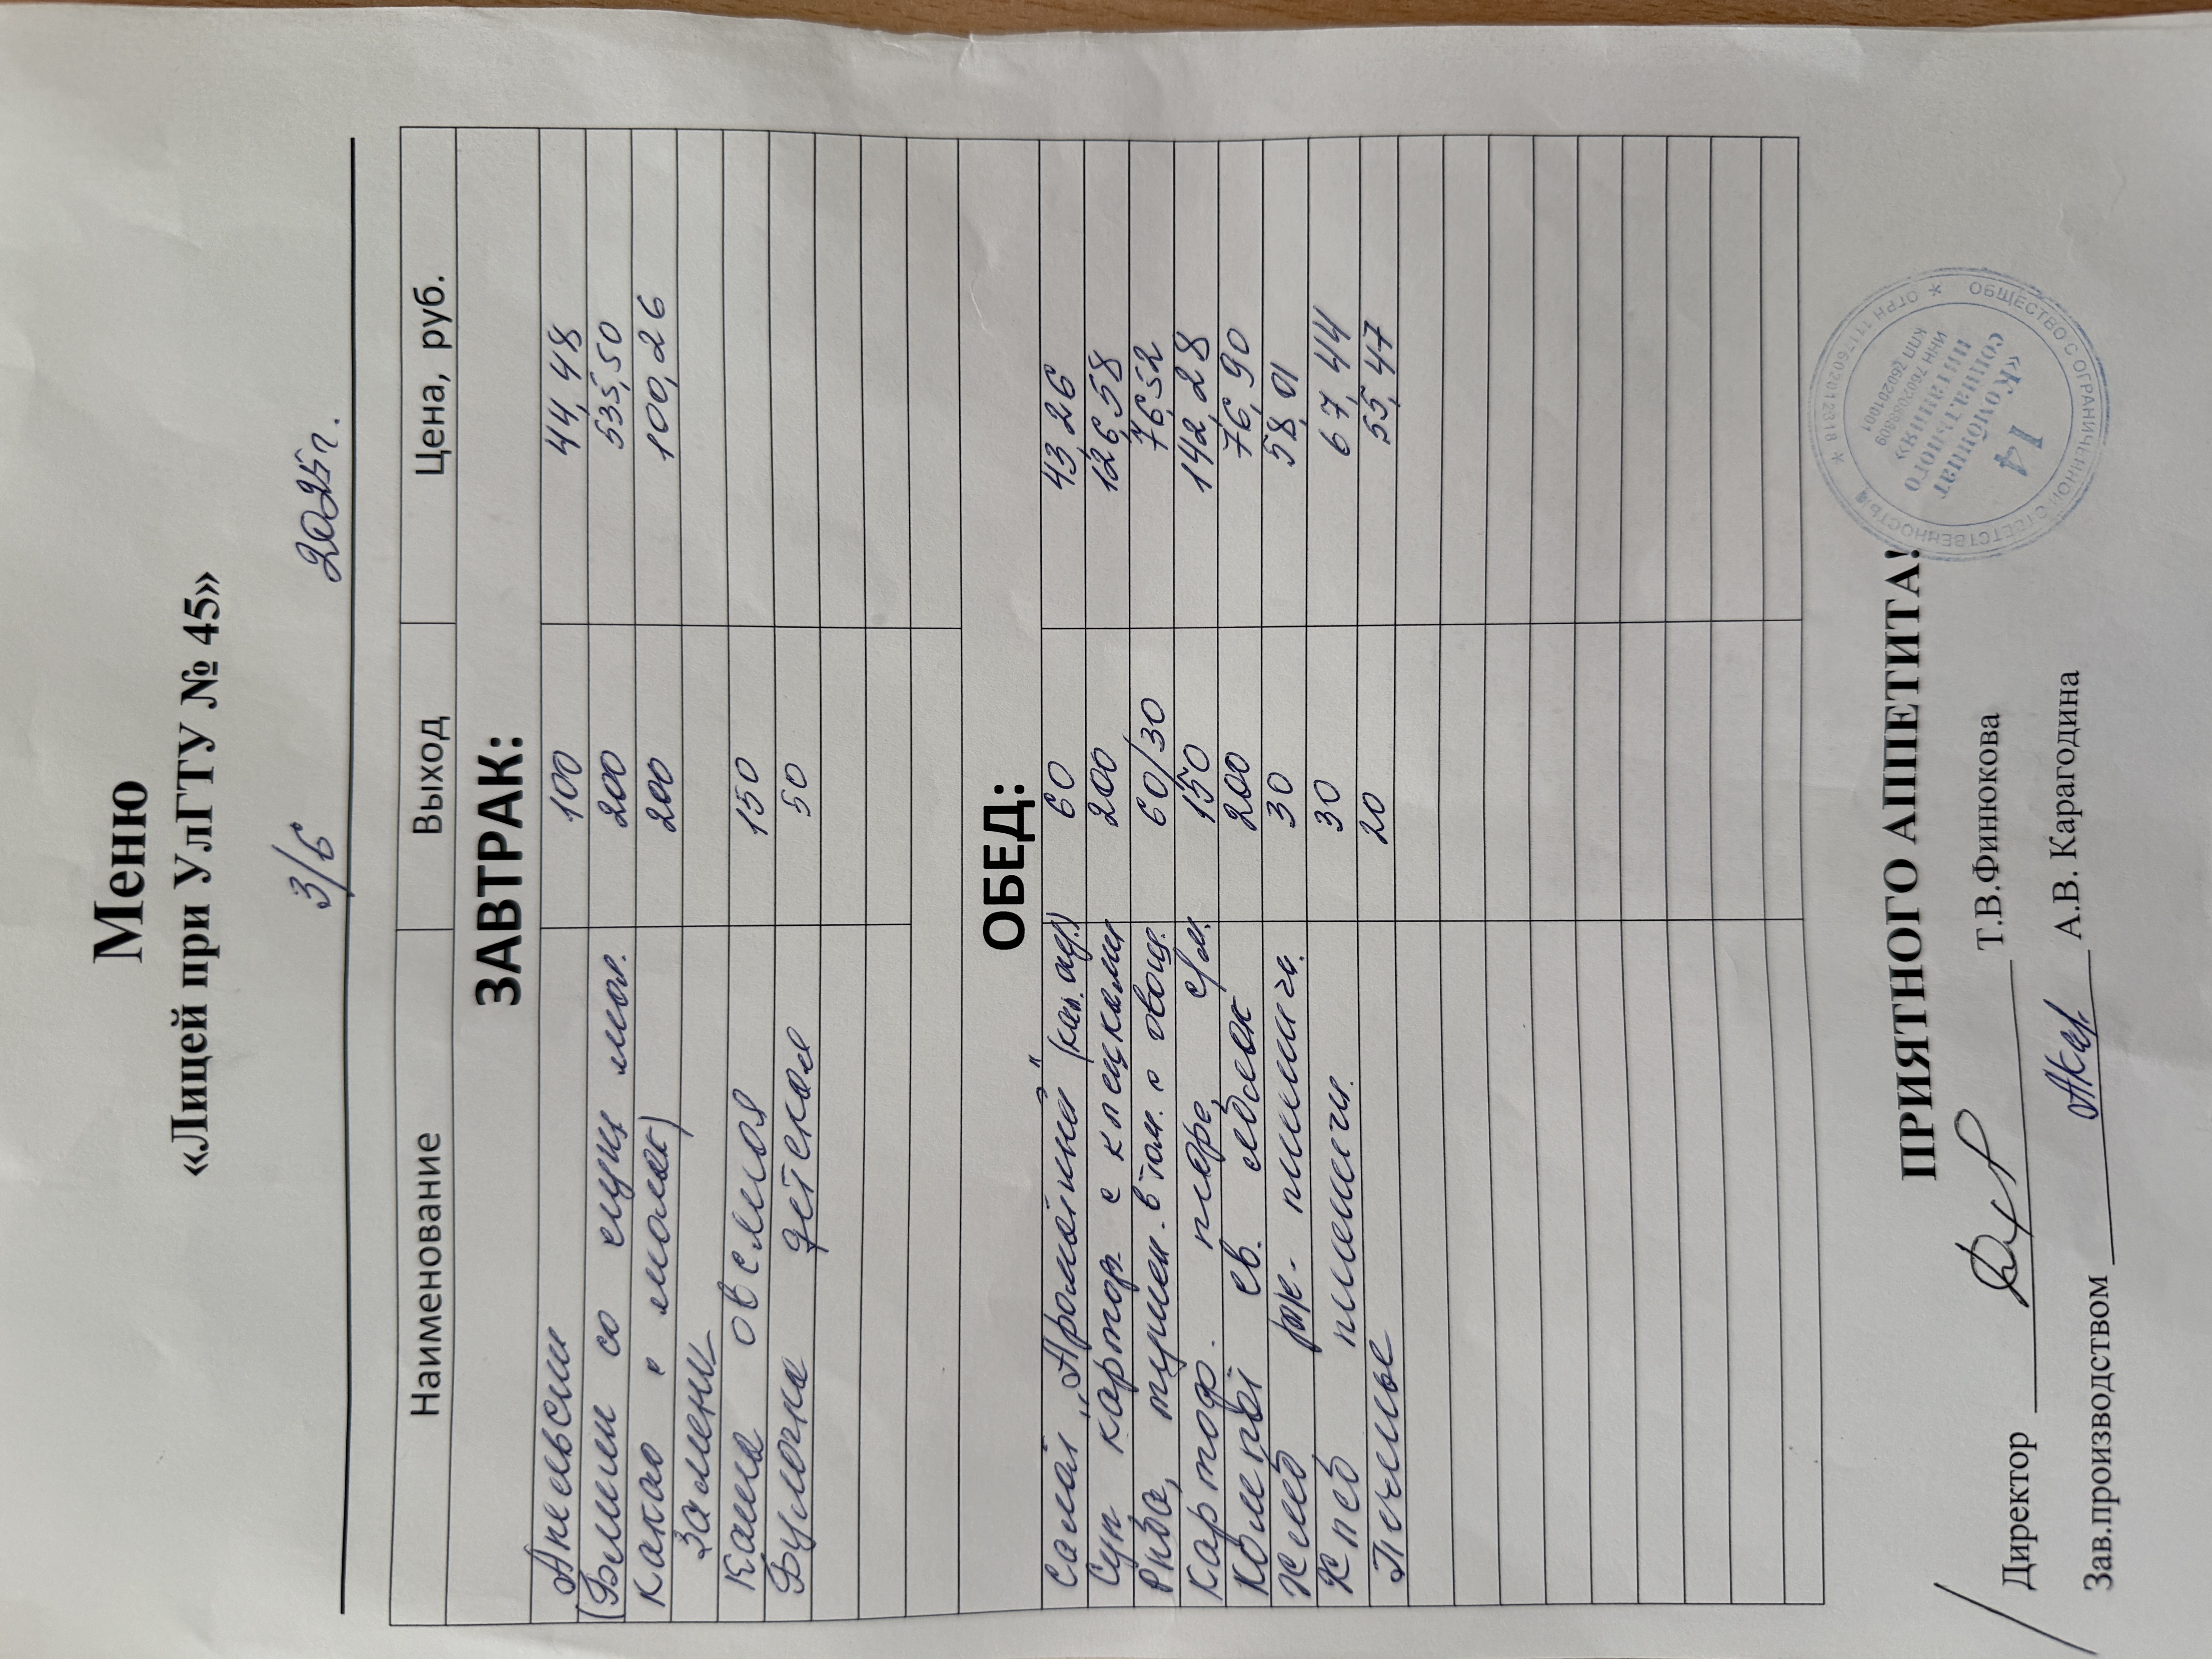 Меню
«Лицей при УлГТУ № 45»
3/Б 2025г.
Наименование Выход Цена, руб.
ЗАВТРАК:
Апельсин 100 44,48
(Блины со сгущ мол. 200 535,50
Какао с молок) 200 100,26
Замена
Каша овсяная 150
Булочка детская 50
ОБЕД:
Салат „Ароматный" (кап. ) 60 43,26
Суп картоф. с клецками 200 126,58
Рыба, тушен. в том. с овощ. 60/30 76,52
Картоф. пюре, с/м. 150 142,28
Компот св. яблок 200 76,90
Хлеб рж. пшенич. 30 58,01
Хлеб пшенич. 30 67,44
Печенье 20 55,47
ПРИЯТНОГО АППЕТИТА!
Директор Т.В.Финюкова
Зав.производством А.В. Карагодина
ОБЩЕСТВО С ОГРАНИЧЕННОЙ ОТВЕТСТВЕННОСТЬЮ
«Комбинат
социального
питания»
14